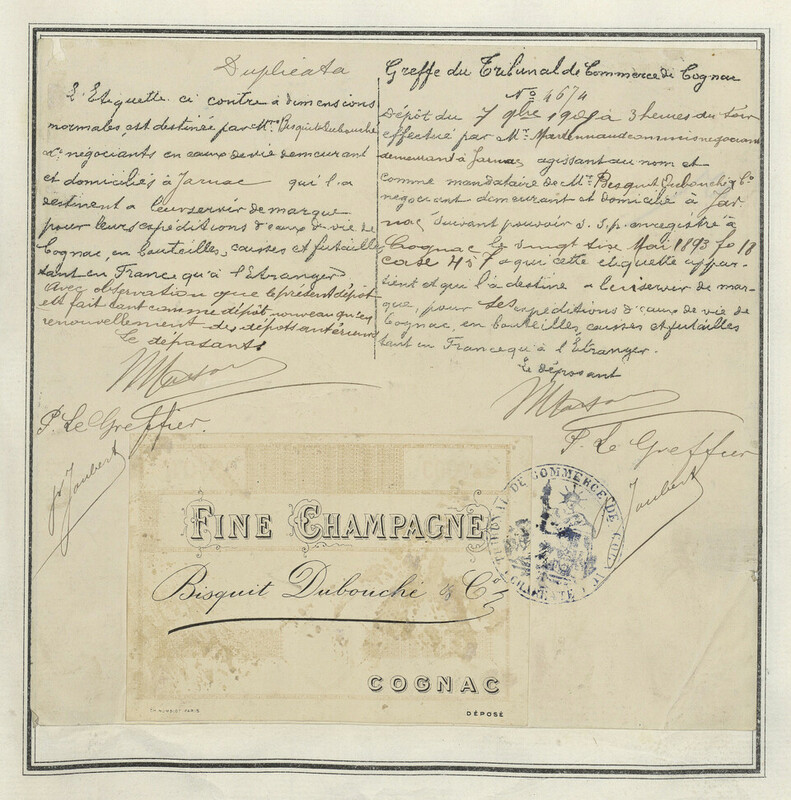 Duplicata
L'Etiquette ci contre à dimensions
normales est destinée par Mrs Bisquit Dubouché
& Co négociants en eaux de vie demeurant
et domiciliés à Jarnac qui l'a
destinent a leur servir de marque
pour leurs expéditions d'eaux de vie de
Cognac, en bouteilles, caisses et futailles
tant en France qu'à l'Etranger
Avec observation que le présent dépôt
est fait tant comme dépôt nouveau qu'en
renouvellement des dépôts antérieurs
Le déposant.
P. Le Greffier.
Joubert
Greffe du Tribunal de Commerce de Cognac
No 4674
Dépôt du 7 9bre à 3 heures du soir
effectué par Mr commis négociant
demeurant à Jarnac agissant au nom et
comme mandataire de Mrs Bisquit Dubouché & Co
négociant demeurant et domicilié à Jar-
nac suivant pouvoir s.s.p. enregistré à
Cognac le vingt six Mai 1893 fo 18
case 457 a qui cette etiquette appar-
tient et qui l'a destine a leur servir de mar-
que, pour ses expéditions d'eaux de vie de
Cognac, en bouteilles, caisses et futailles
tant en France qu'à l'Etranger.
Le déposant
P. Le Greffier
Joubert
FINE CHAMPAGNE
Bisquit Dubouché & Co
COGNAC
DÉPOSÉ
TRIBUNAL DE COMMERCE DE COGNAC
(CHARENTE)